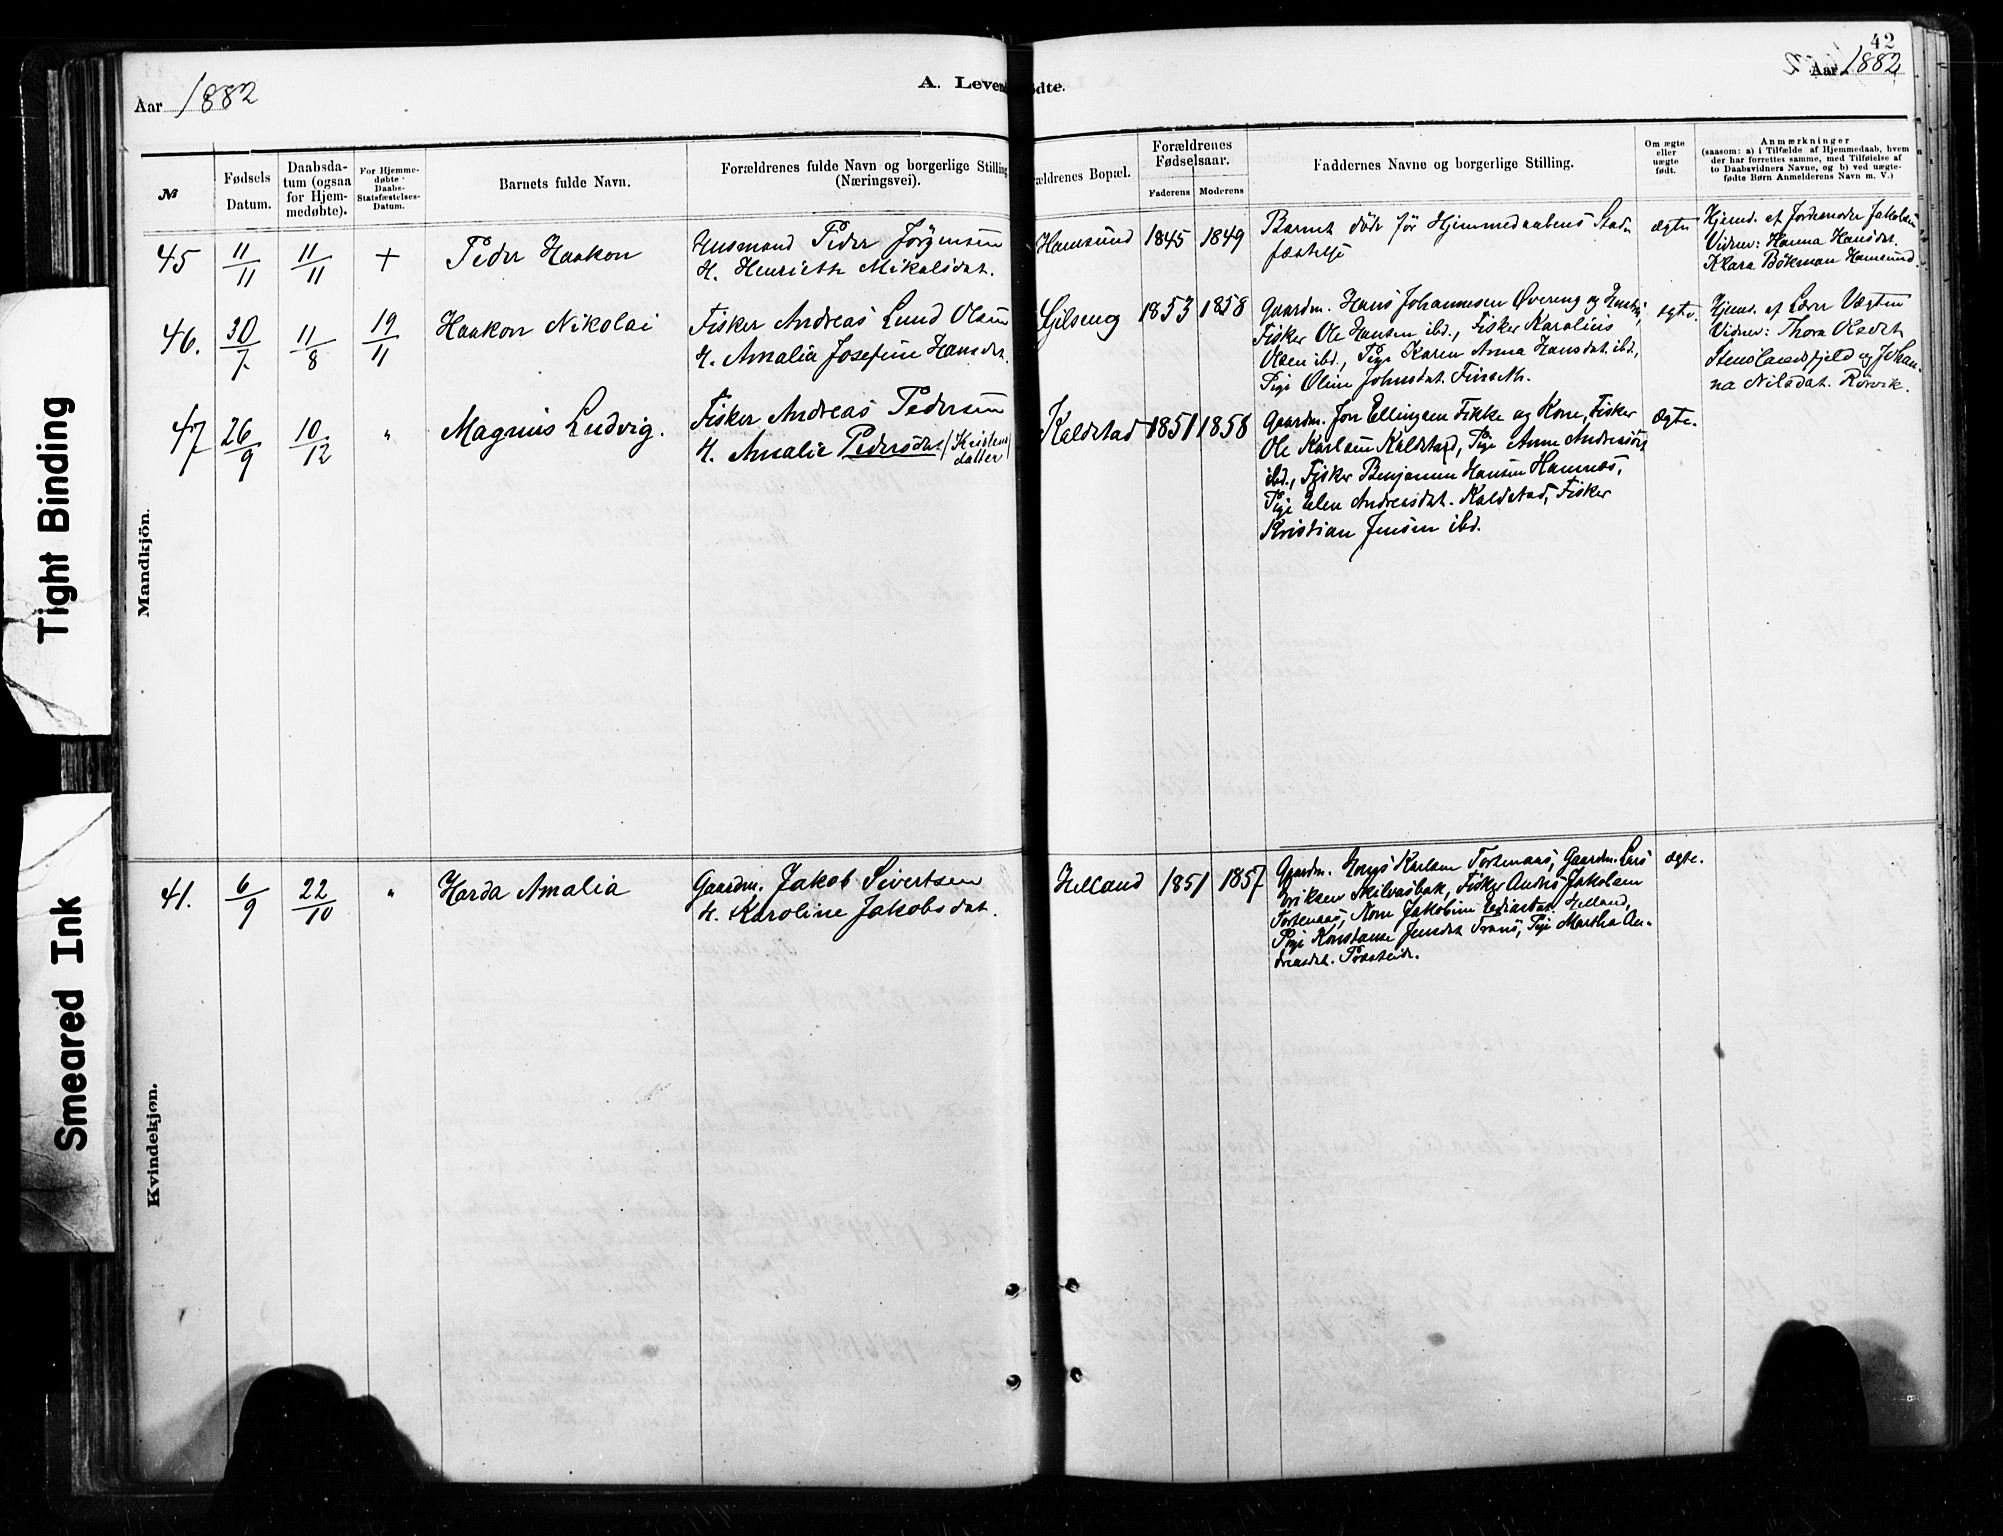 42
Aar 1882
A. Levendefødte.
Aar 1882
№
Fødsels Datum.
Daabsdatum (ogsaa for Hjemmedøbte).
For Hjemmedøbte Daabs-Statsfæstelses-Datum.
Barnets fulde Navn.
Forældrenes fulde Navn og borgerlige Stilling (Næringsvei).
Forældrenes Bopæl.
Forældrenes Fødselsaar.
Faderens
Moderens
Faddernes Navne og borgerlige Stilling.
Om ægte eller uægte født.
Anmærkninger
(saasom: a) i Tilfælde af Hjemmedaab, hvem
der har forrettet samme, med Tilføielse af
to Daabsvidners Navne, og b) ved uægte-
fødte Børn Anmelderens Navn m. V.)
Mandkjön.
45 11/11 11/11 + Peder Haakon
Husmand Peder Jörgensen
H. Henriette Mikalsdat.
Hamsund 1845 1849
Barnet døde før Hjemmedaabens Stad-
fæstelse
ægte
Hjemd. af Jordemoder Jakobsen
Vidner: Hanna Hansdat.
Klara Bökman Hamsund.
46. 30/7. 11/8 19/11 Haakon Nikolai
Fisker Andreas Lund Olsen
H. Amalia Josefine Hansdat.
Gilseng 1853 1858
Gaardm. Hans Johannesen Övereng og Hustru,
Fisker Ole Hansen ibd., Fisker Karolius
Olsen ibd., Pige Karen Anna Hansdat. ibd.,
Pige Oline Johnsdat. Finseth.
ægte.
Hjemd. af Lærer Vegten
Vidner: Thora Olsdat.
Stenslandsfjeld og Johan-
na Nilsdat. Rörvik.
47 26/9 10/12 " Magnus Ludvig.
Fisker Andreas Pedersen
H. Amalie Pedersdat. (Kristens
datter)
Kaldstad 1851 1858
Gaardm. Jon Ellingsen Fikke og Kone, Fisker
Ole Karlsen Kaldstad, Pige Anne Andreasdat
ibd., Fisker Benjamin Hansen Hamnes,
Pige Elen Andreasdat. Kaldstad, Fisker
Kristian Jensen ibd.
Ægte.
Kvindekjøn.
41. 6/9 22/10 " Harda Amalia
Gaardm. Jakob Sivertsen
H. Karoline Jakobsdat.
Helland 1851 1857
Gaardm. Karlsen Tortenaas, Gaardm. Lars
Eriksen Skilvasbak, Fisker Andreas Jakobsen
Tortenaas, Kone Jakobine Helland,
Pige Konstanse Jensdat Tranö, Pige Martha An-
dreasdat.
ægte.
Tight Binding
Smeared Ink